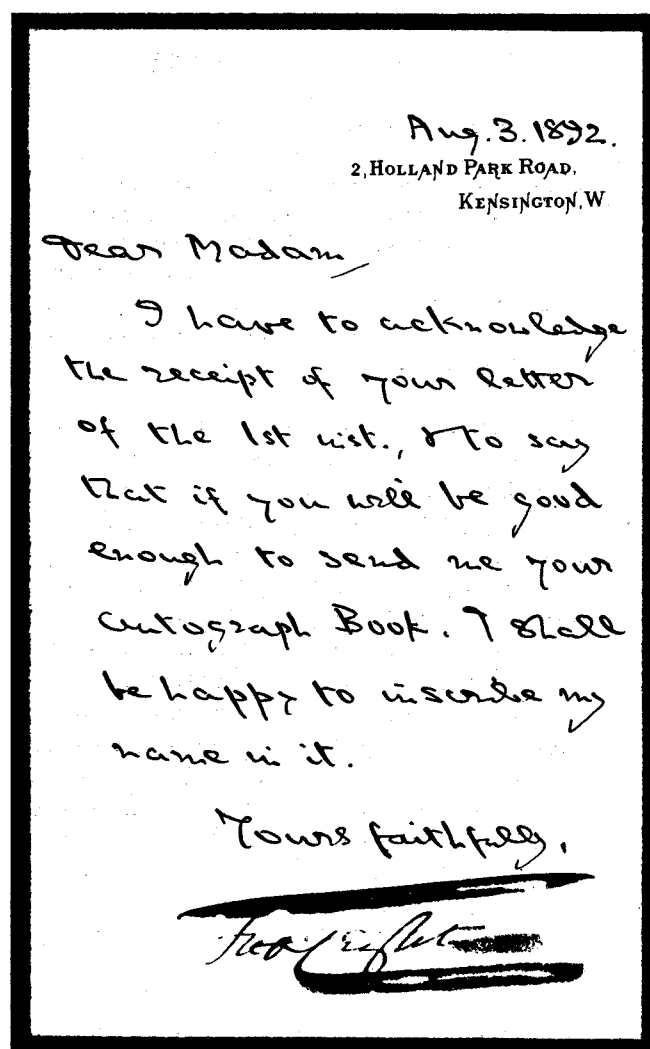 Aug. 3. 1892.
2, HOLLAND PARK ROAD,
KENSINGTON, W
Dear Madam
I have to acknowledge
the receipt of your letter
of the 1st inst., & to say
that if you will be good
enough to send me your
autograph Book. I shall
be happy to inscribe my
name in it.
Yours faithfully,